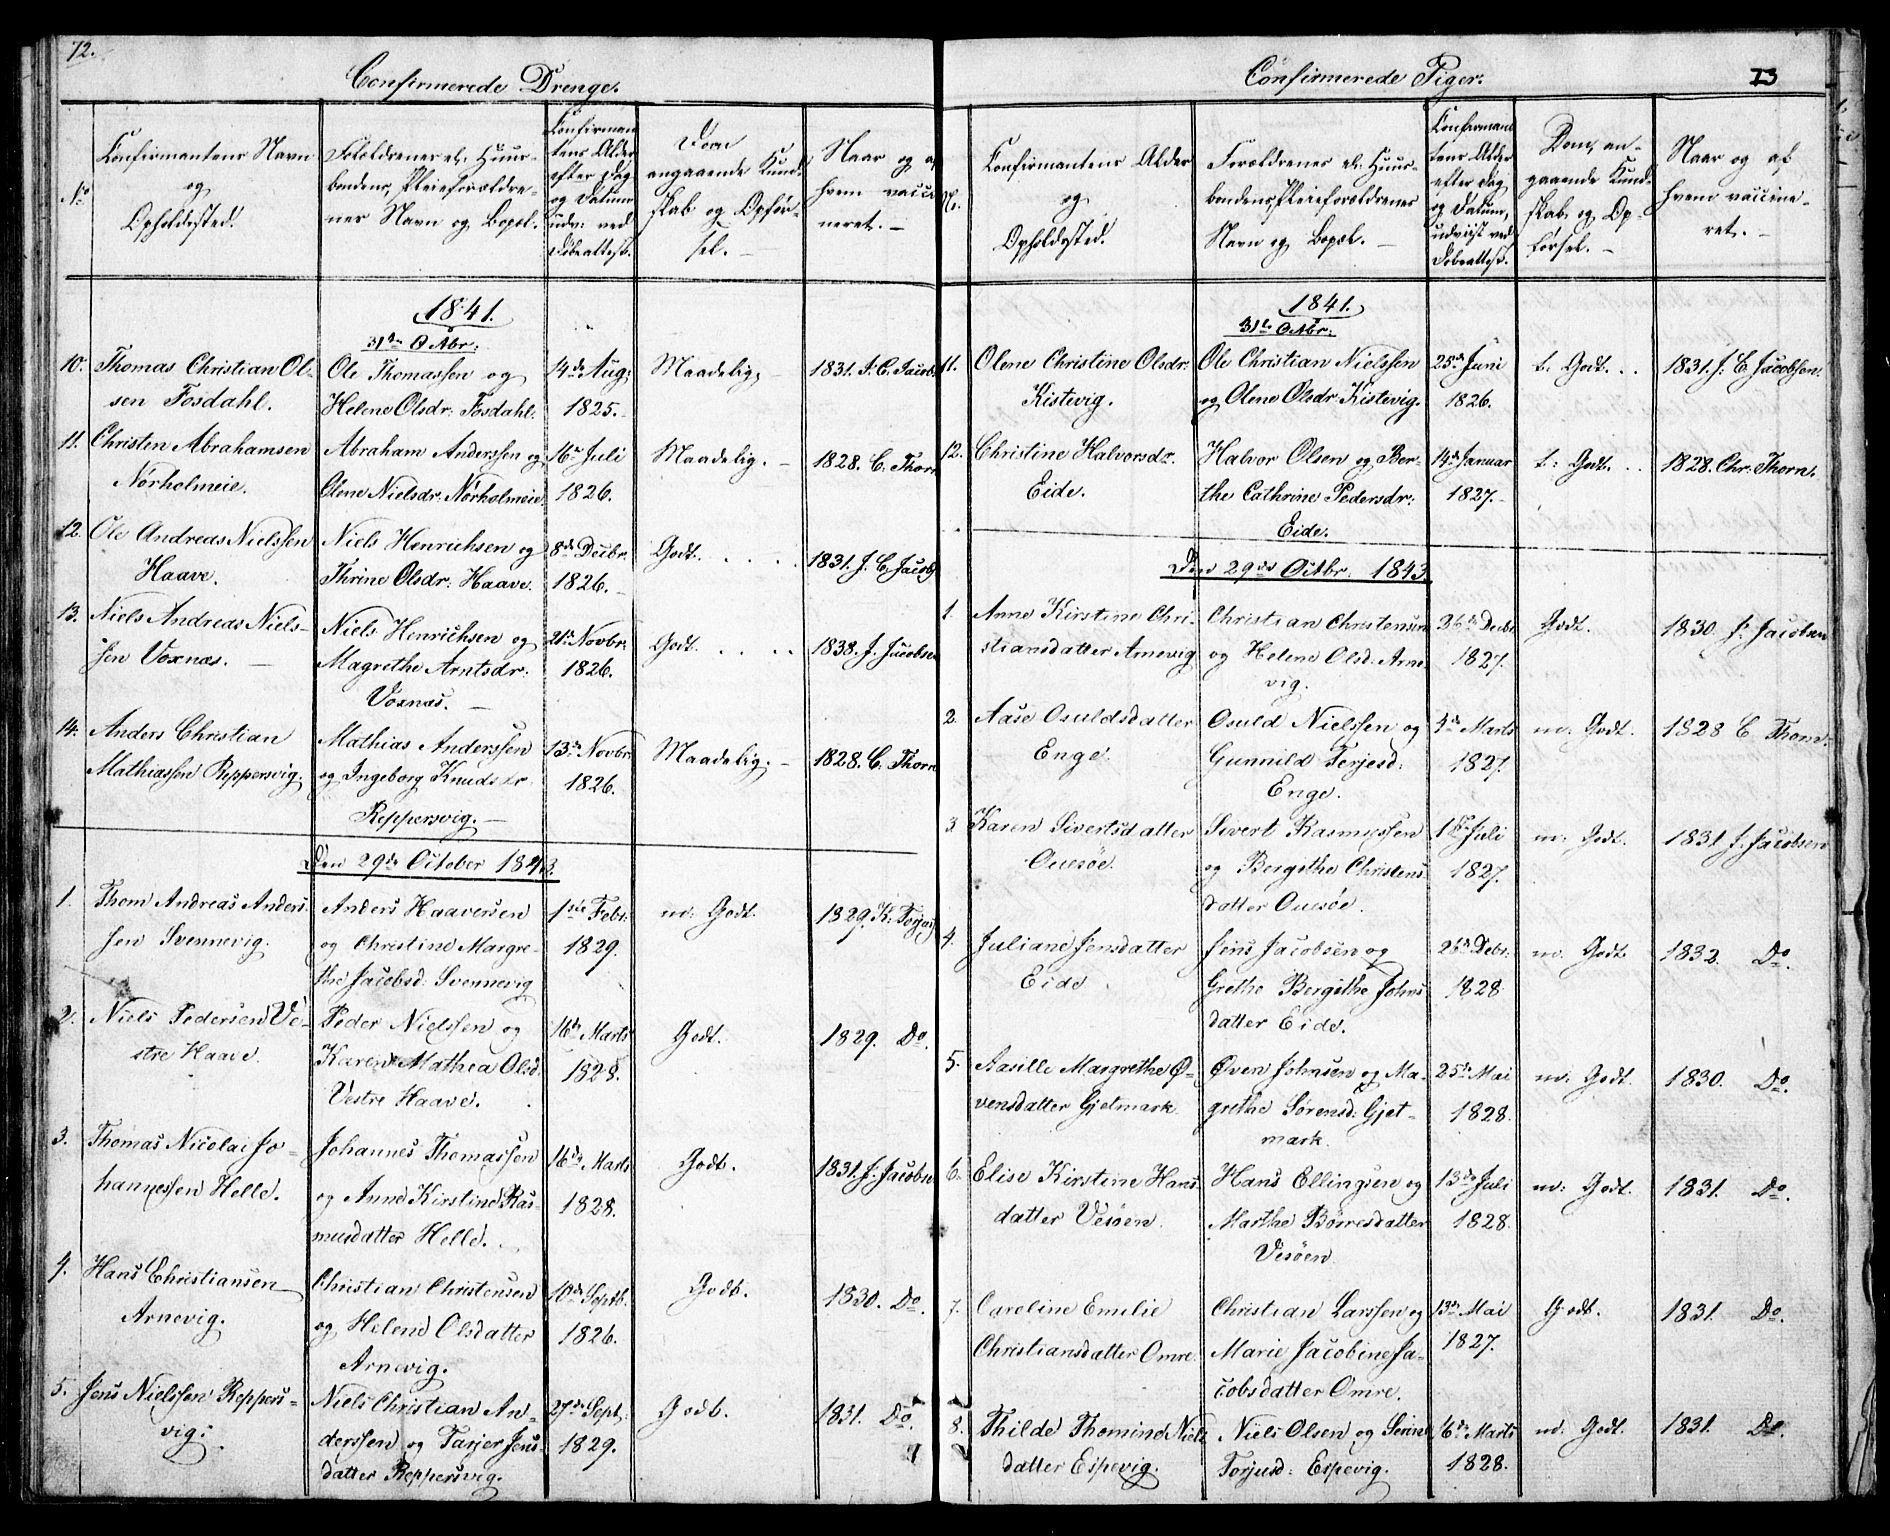 72.
Confirmerede Drenge.
No
Confirmantens Navn
og
Opholdssted.
Forældrenes el: Huus-
bondens, Pleieforældre-
nes Navn og Bopel.
Confirman
tens Alder
efter Dag
og Datum
udv: ved
Døbeattest.
Dom
angaaende Kund-
skab og Opfør-
sel.
Naar og af
hvem vacci
neret.
1841.
31te Octbr:
10. Thomas Christian Ol-
sen Fosdahl.
Ole Thomassen og
Helene Olsdr: Fosdahl.
14de Aug:
1825.
Maadelig.
1831. J. C. Jacobs
11. Christen Abrahamsen
Nørholmeie.
Abraham Anderssen og
Olene Nielsdr: Nørholmeie.
16de Juli
1826.
Maadelig.
1828. C. Thorn
12. Ole Andreas Nielssen
Haave.
Niels Henrichsen og
Thrine Olsdr: Haave.
8de Decbr.
1826.
Godt. . . . .
1831. J. C. Jacobs
13. Niels Andreas Niels-
sen Voxnæs.
Niels Henrichsen og
Magrethe Arntsdr.
Voxnæs.
21de Novbr.
1826.
Godt. . . . .
1838. J. Jacobsen
14. Anders Christian
Mathiassen Reppersvig.
Mathias Anderssen
og Ingeborg Knudsdr
Reppersvig.
13de Novbr.
1826.
Maadelig.
1828. C. Thorn
Den 29de October 1843.
1. Thom Andreas Anders-
sen Svennevig.
Anders Haaversen
og Christine Margre-
the Jacobsd: Svennevig
1ste Febr.
1829.
m: Godt.
1829. K. Torjus
2. Niels Pedersen Ve-
stre Haave.
Peder Nielssen og
Karen Mathea Olsd.
Vestre Haave.
16de Marts
1828.
Godt.
1829. Do.
3. Thomas Nicolai Jo-
hannessen Helle.
Johannes Thomassen
og Anne Kirstine Ras-
musdatter Helle.
16de Marts
1828.
Godt.
1831. J. Jacobsen
4. Hans Christiansen
Arnevig.
Christian Christensen
og Helene Olsdatter
Arnevig.
10de Septb.
1826.
Godt.
1830. Do.
5. Jens Nielssen Reppers-
vig.
Niels Christian An-
derssen og Tarjer Jens-
datter Reppersvig.
27de Sept.
1829.
Godt.
1831. Do.
Confirmerede Piger.
73
No.
Confirmantens Alder
og
Opholdssted.
Forældrenes el: Huus-
bondens, Pleieforældrenes
Navn og Bopæl.
Confirmand
tens Alder
efter Dag
og Datum,
udviist ved
Døbeattest.
Dom, an-
gaaende Kund-
skab og Op-
førsel.
Naar og af
hvem vaccine-
ret.
1841.
31te Octbr:
11. Olene Christine Olsdr.
Kistevig.
Ole Christian Nielssen
og Olene Olsdr: Kistevig.
25de Juni
1826.
t: Godt. . .
1831. J. C. Jacobsen.
12. Christine Halvorsdr.
Eide.
Halvor Olsen og Ber-
the Cathrine Pedersdr:
Eide.
14de Januar
1827.
t: Godt. . .
1828. Chr. Thorn.
Den 29de Octbr: 1843.
1. Anne Kirstine Chri-
stiansdatter Arnevig
Christian Christensen
og Helene Olsd: Arne
vig.
Decbr.
1827.
Godt.
1830. J. Jacobsen
2. Aase Osuldsdatter
Enge.
Osuld Nielssen og
Gunnild Terjesd:
Enge.
4de Marts
1827.
m: Godt.
1828 C. Thorn.
3 Karen Sivertsdatter
Ouesøe.
Sivert Rasmussen
og Bergithe Christens
datter Ouesøe.
Juli
1827.
m: Godt.
1831 J. Jacobsen
4. Juliane Jensdatter
Eide.
Jens Jacobsen og
Grethe Bergithe Johns
datter Eide.
26de Debr.
1828
m: Godt.
1832. Do.
5. Aasille Margrethe Ø-
vensdatter Gjetmark.
Øven Johnsen og Ma-
grethe Sørensd: Gjet-
mark.
25de Mai
1828.
m: Godt.
1830. Do.
6. Elise Kirstine Hans
datter Vesøen.
Hans Ellingsen og
Marthe Børresdatter
Vesøen.
13de Juli
1828.
m: Godt.
1831. Do.
7. Caroline Emilie
Christiansdatter Omre.
Christian Larssen og
Marie Jacobine Ja-
cobsdatter Omre.
13de Mai
1827.
Godt.
1831. Do.
8. Thilde Thomine Niels
datter Espevig.
Niels Olsen og Serine
Torjusd: Espevig.
16de Marts
1828.
m: Godt.
1831. Do